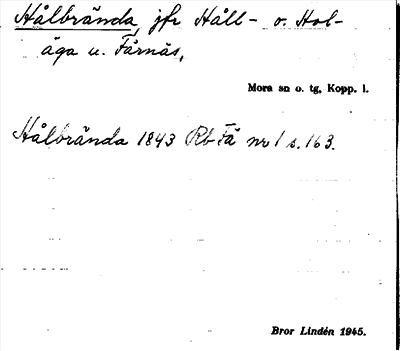 Hålbrända, jfr Håll- o. Hol-
äga u. Färnäs,
Mora sn o. tg, Kopp. l.
Hålbrända 1843 Rb Fä nr 1 s. 163.
Bror Lindén 1945.